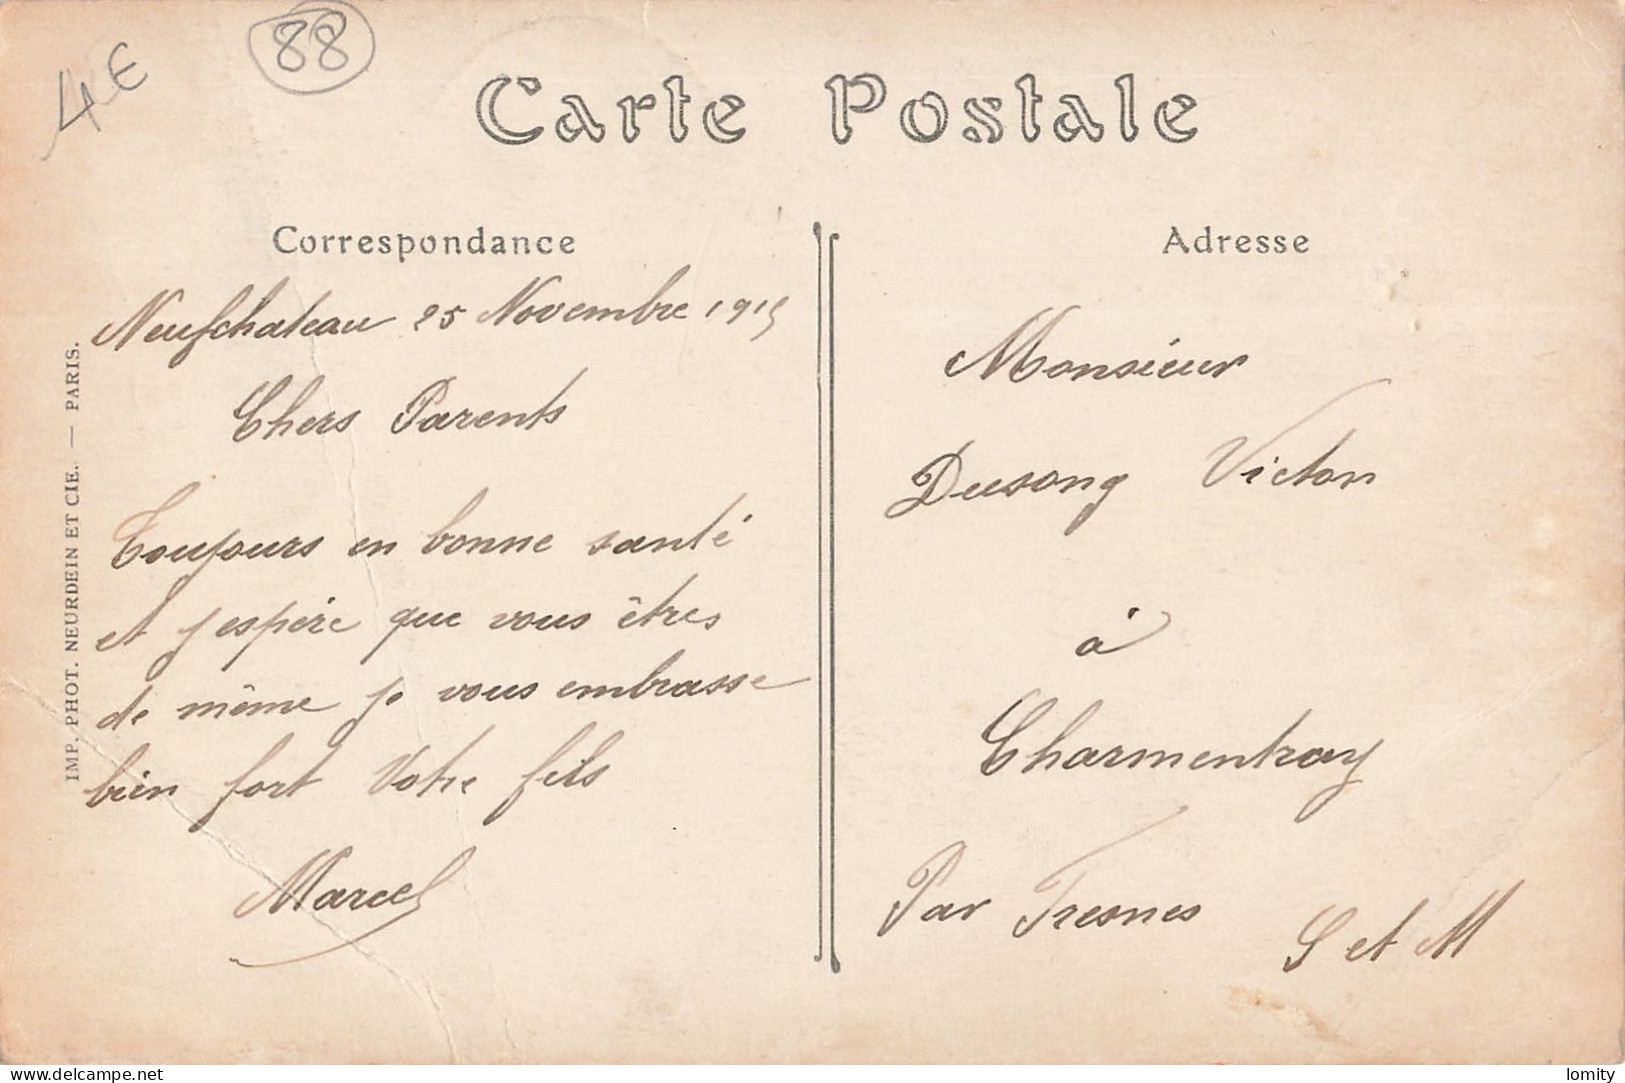 4E
88
Carte Postale
Correspondance
Neufchateau 25 Novembre 1915
Chers Parents
Toujours en bonne santé
et j espère que vous êtres
de même je vous embrasse
bien fort Votre fils
Marcel
Adresse
Monsieur
Dusong Victor
à
Charmentray
Par Fresnes
S et M
IMP. PHOT. NEURDEIN ET CIE. — PARIS.
www.delcampe.net
lomity